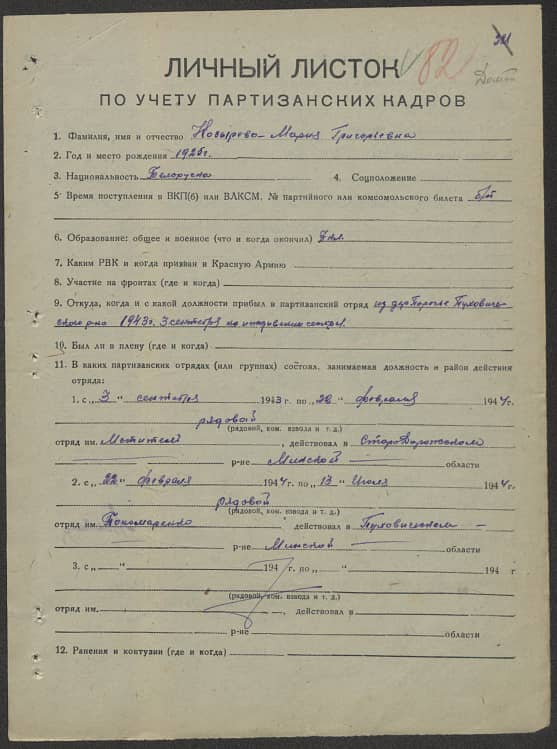 82
ЛИЧНЫЙ ЛИСТОК
ПО УЧЕТУ ПАРТИЗАНСКИХ КАДРОВ
1. Фамилия, имя и отчество Козырева Мария Григорьевна
2. Год и место рождения 1925г.
3. Национальность Белоруска 4. Соцположение
5. Время поступления в ВКП(б) или ВЛКСМ, № партийного или комсомольского билета б/п
6. Образование: общее и военное (что и когда окончил) 7 кл.
7. Каким РВК и когда призван в Красную Армию
8. Участие на фронтах (где и когда)
9. Откуда, когда и с какой должности прибыл в партизанский отряд из дер Поречье Пуховичь-
ского р-на 1943г. 3 сентября по
10. Был ли в плену (где и когда)
11. В каких партизанских отрядах (или группах) состоял, занимаемая должность и район действия
отряда:
1. с „3" сентября 1943 г. по „22" февраля 1944 г.
рядовой
(рядовой, ком. взвода и т. д.)
отряд им. Мстители, действовал в СтароДорожском
р-не Минской области
2. с „22" февраля 1944 г. по „13" Июля 1944 г.
рядовой
(рядовой, ком. взвода и т. д.)
отряд им. Пономаренко действовал в Пуховичском
р-не Минской области
3. с „ " 194 г. по „ " 194 г
(рядовой, ком. взвода и т. д.)
отряд им. , действовал в
р-не области
12. Ранения и контузии (где и когда)